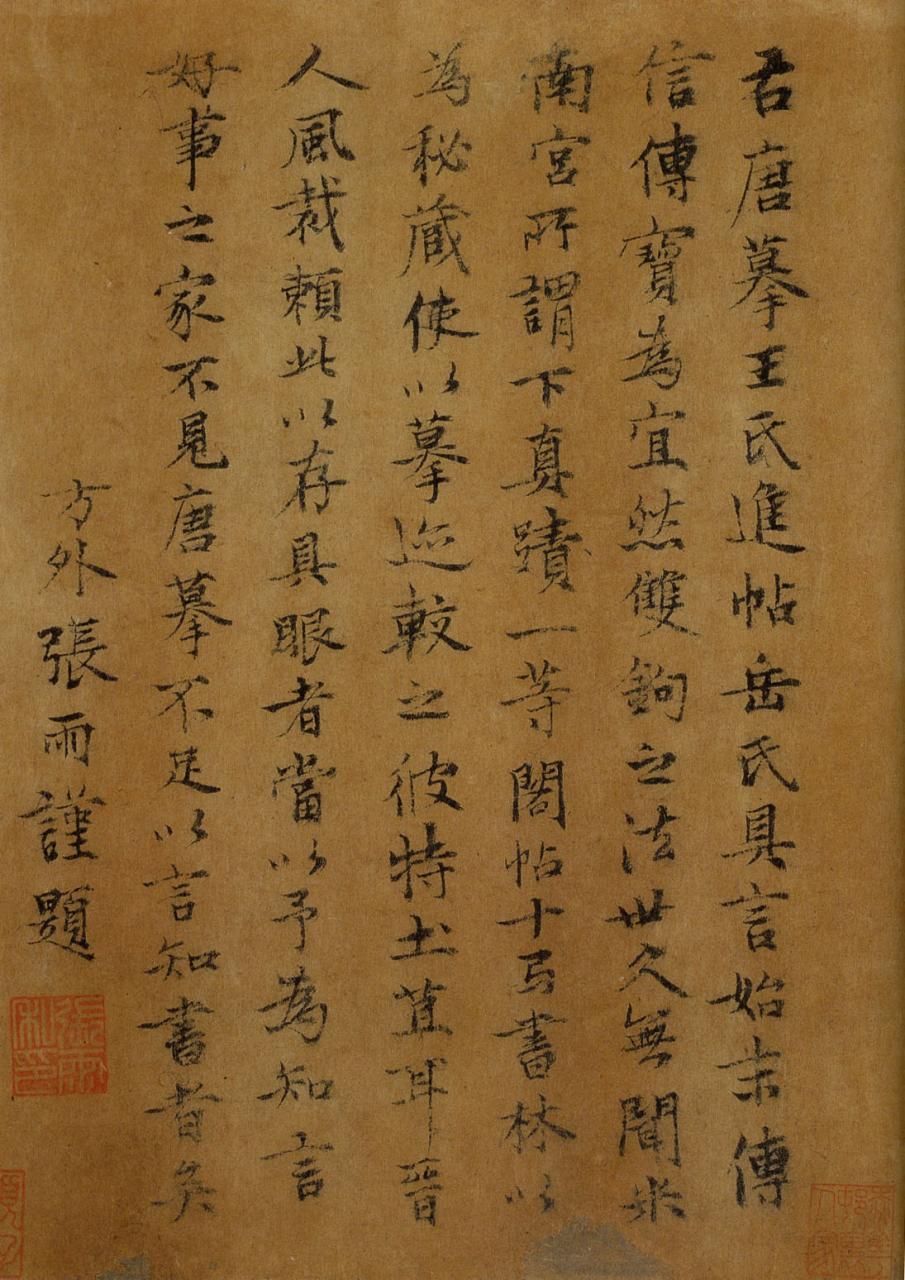 君唐摹王氏進帖岳氏具言始末傳
信傳寶為宜然雙鉤之法世久無聞米
南宮所謂下真蹟一等閣帖十𢎥書林以
為秘藏使以摹迹較之彼特土苴耳晉
人風裁賴此以存具眼者當以予為知言
好事之家不見唐摹不足以言知書者矣
方外張雨謹題
張雨私印